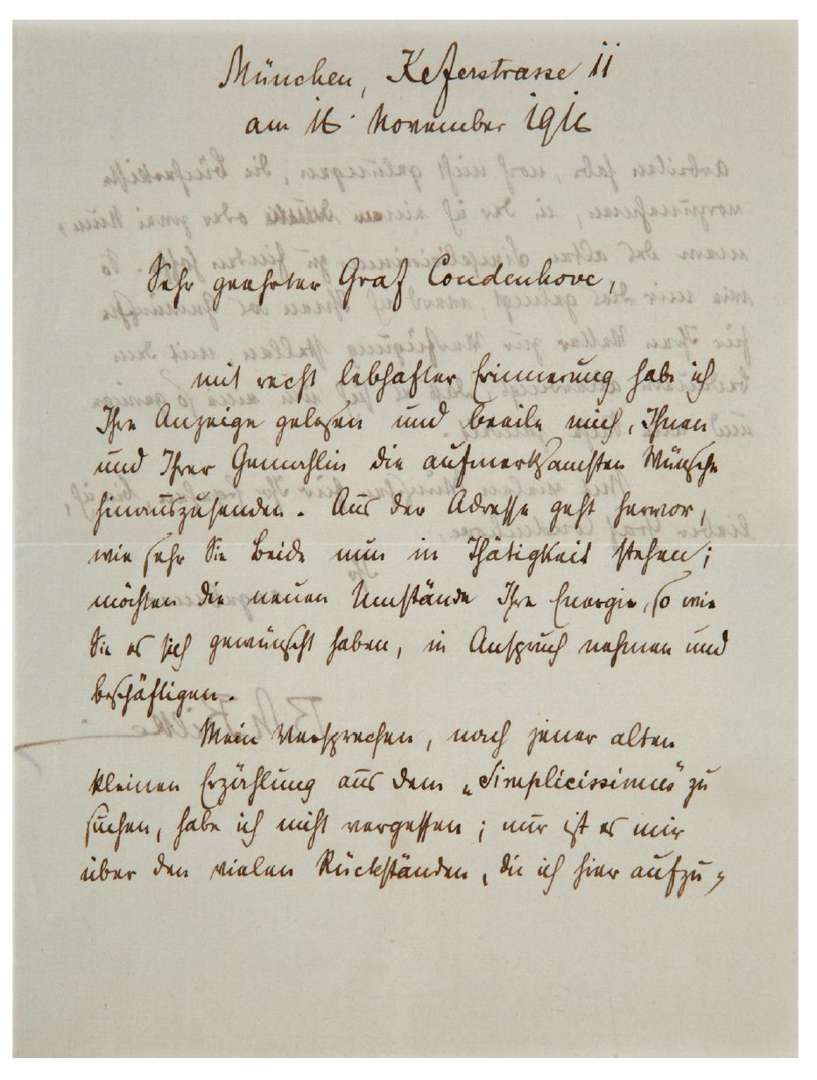 München, Keferstrasse 11
am 16. November 1916
Sehr geehrter Graf Coudenhove,
mit recht lebhafter Erinnerung habe ich
Ihre Anzeige gelesen und beeile mich, Ihnen
und Ihrer Gemahlin die aufmerksamsten Wünsche
hinauszusenden. Aus der Adresse geht hervor,
wie sehr Sie Beide nun in Thätigkeit stehen;
möchten die neuen Umstände Ihre Energie, so wie
Sie es sich gewünscht haben, in Anspruch nehmen und
beschäftigen.
Mein Versprechen, nach jener alten
kleinen Erzählung aus dem „Simplicissimus" zu
suchen, habe ich nicht vergessen; nur ist es mir
über den vielen Rückständen, die ich hier aufzu-